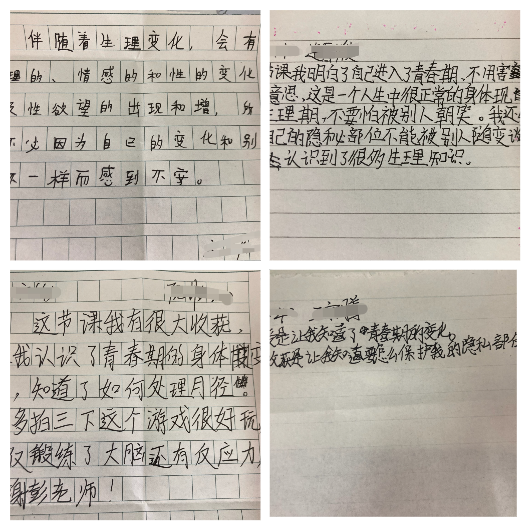 伴随着生理变化，会有
理的、情感的和性的变化
性欲望的出现和增，所
不必因为自己的变化和别
一样而感到不安。
课我明白了自己进入了青春期、不用害
意思，这是一个人生中很正常的身体现
理期，不要怕被别人嘲笑。我还
自己的隐私部位不能被别人随变
认识到了很多生理知识。
这节课我有很大收获，
我认识了青春期的身体
，知道了如何处理月径
多拍三下这个游戏很好玩
仅锻练了大脑还有反应力，
谢彭老师！
是让我知道了青春期的变化，
是让我知道要怎么保护我的隐私部位